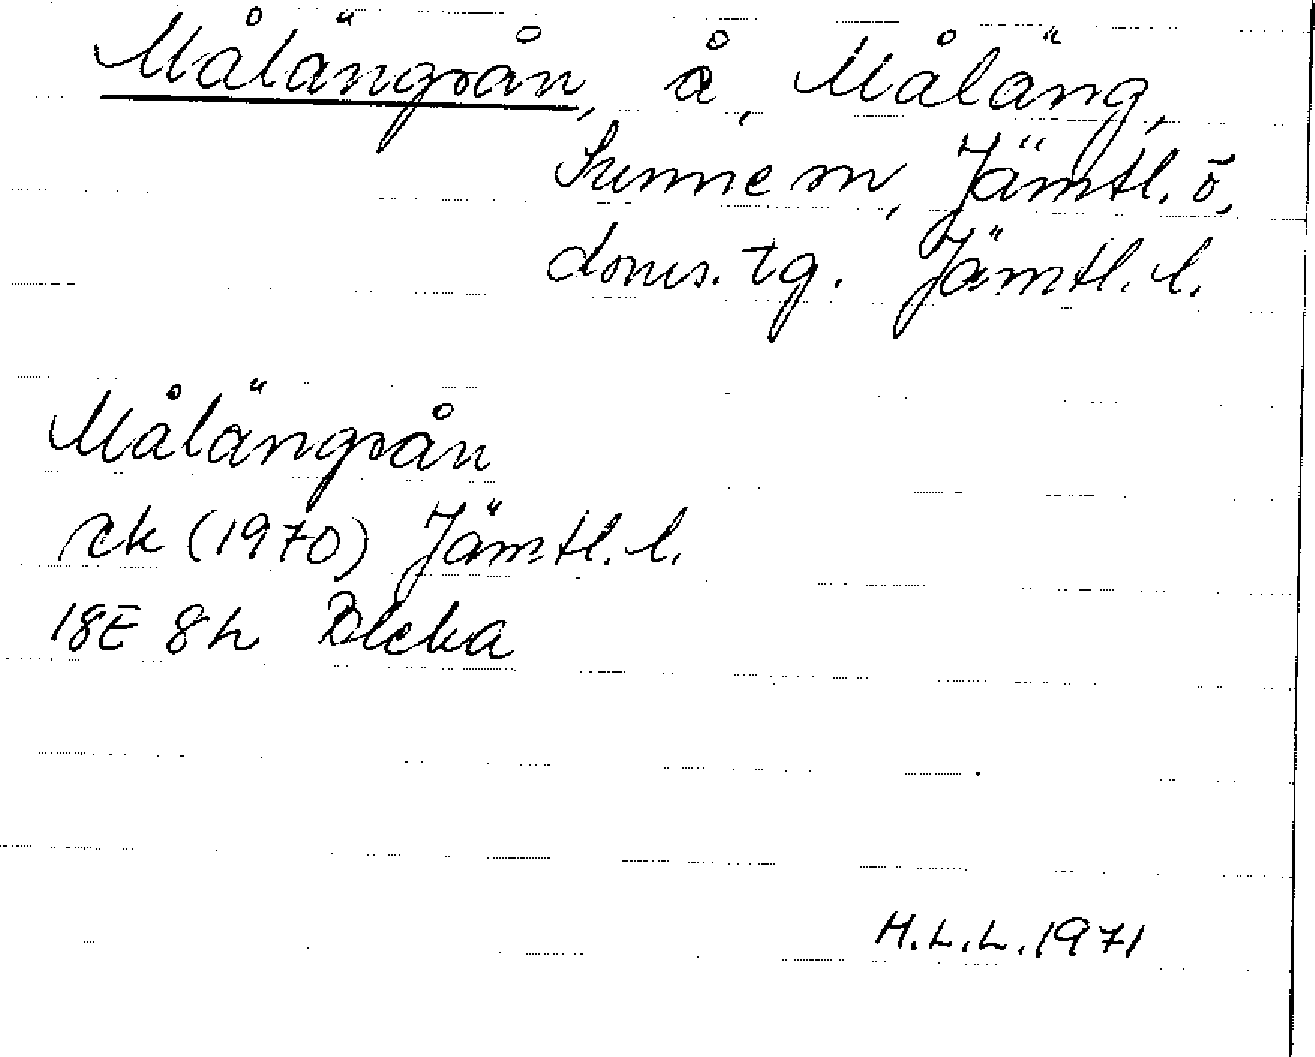 Målängsån, å, Måläng,
Sunne sn, Jämtl. ö.
doms. tg. Jämtl. l.
Målängsån
ek (1970) Jämtl. l.
18E 8h Bleka
H.L.L. 1971